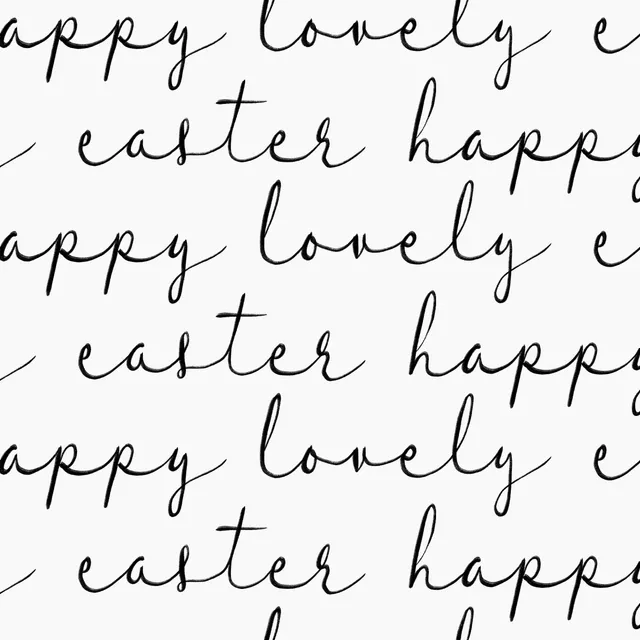 appy lovely e
easter happy
appy lovely e
easter happy
appy lovely e
easter happy